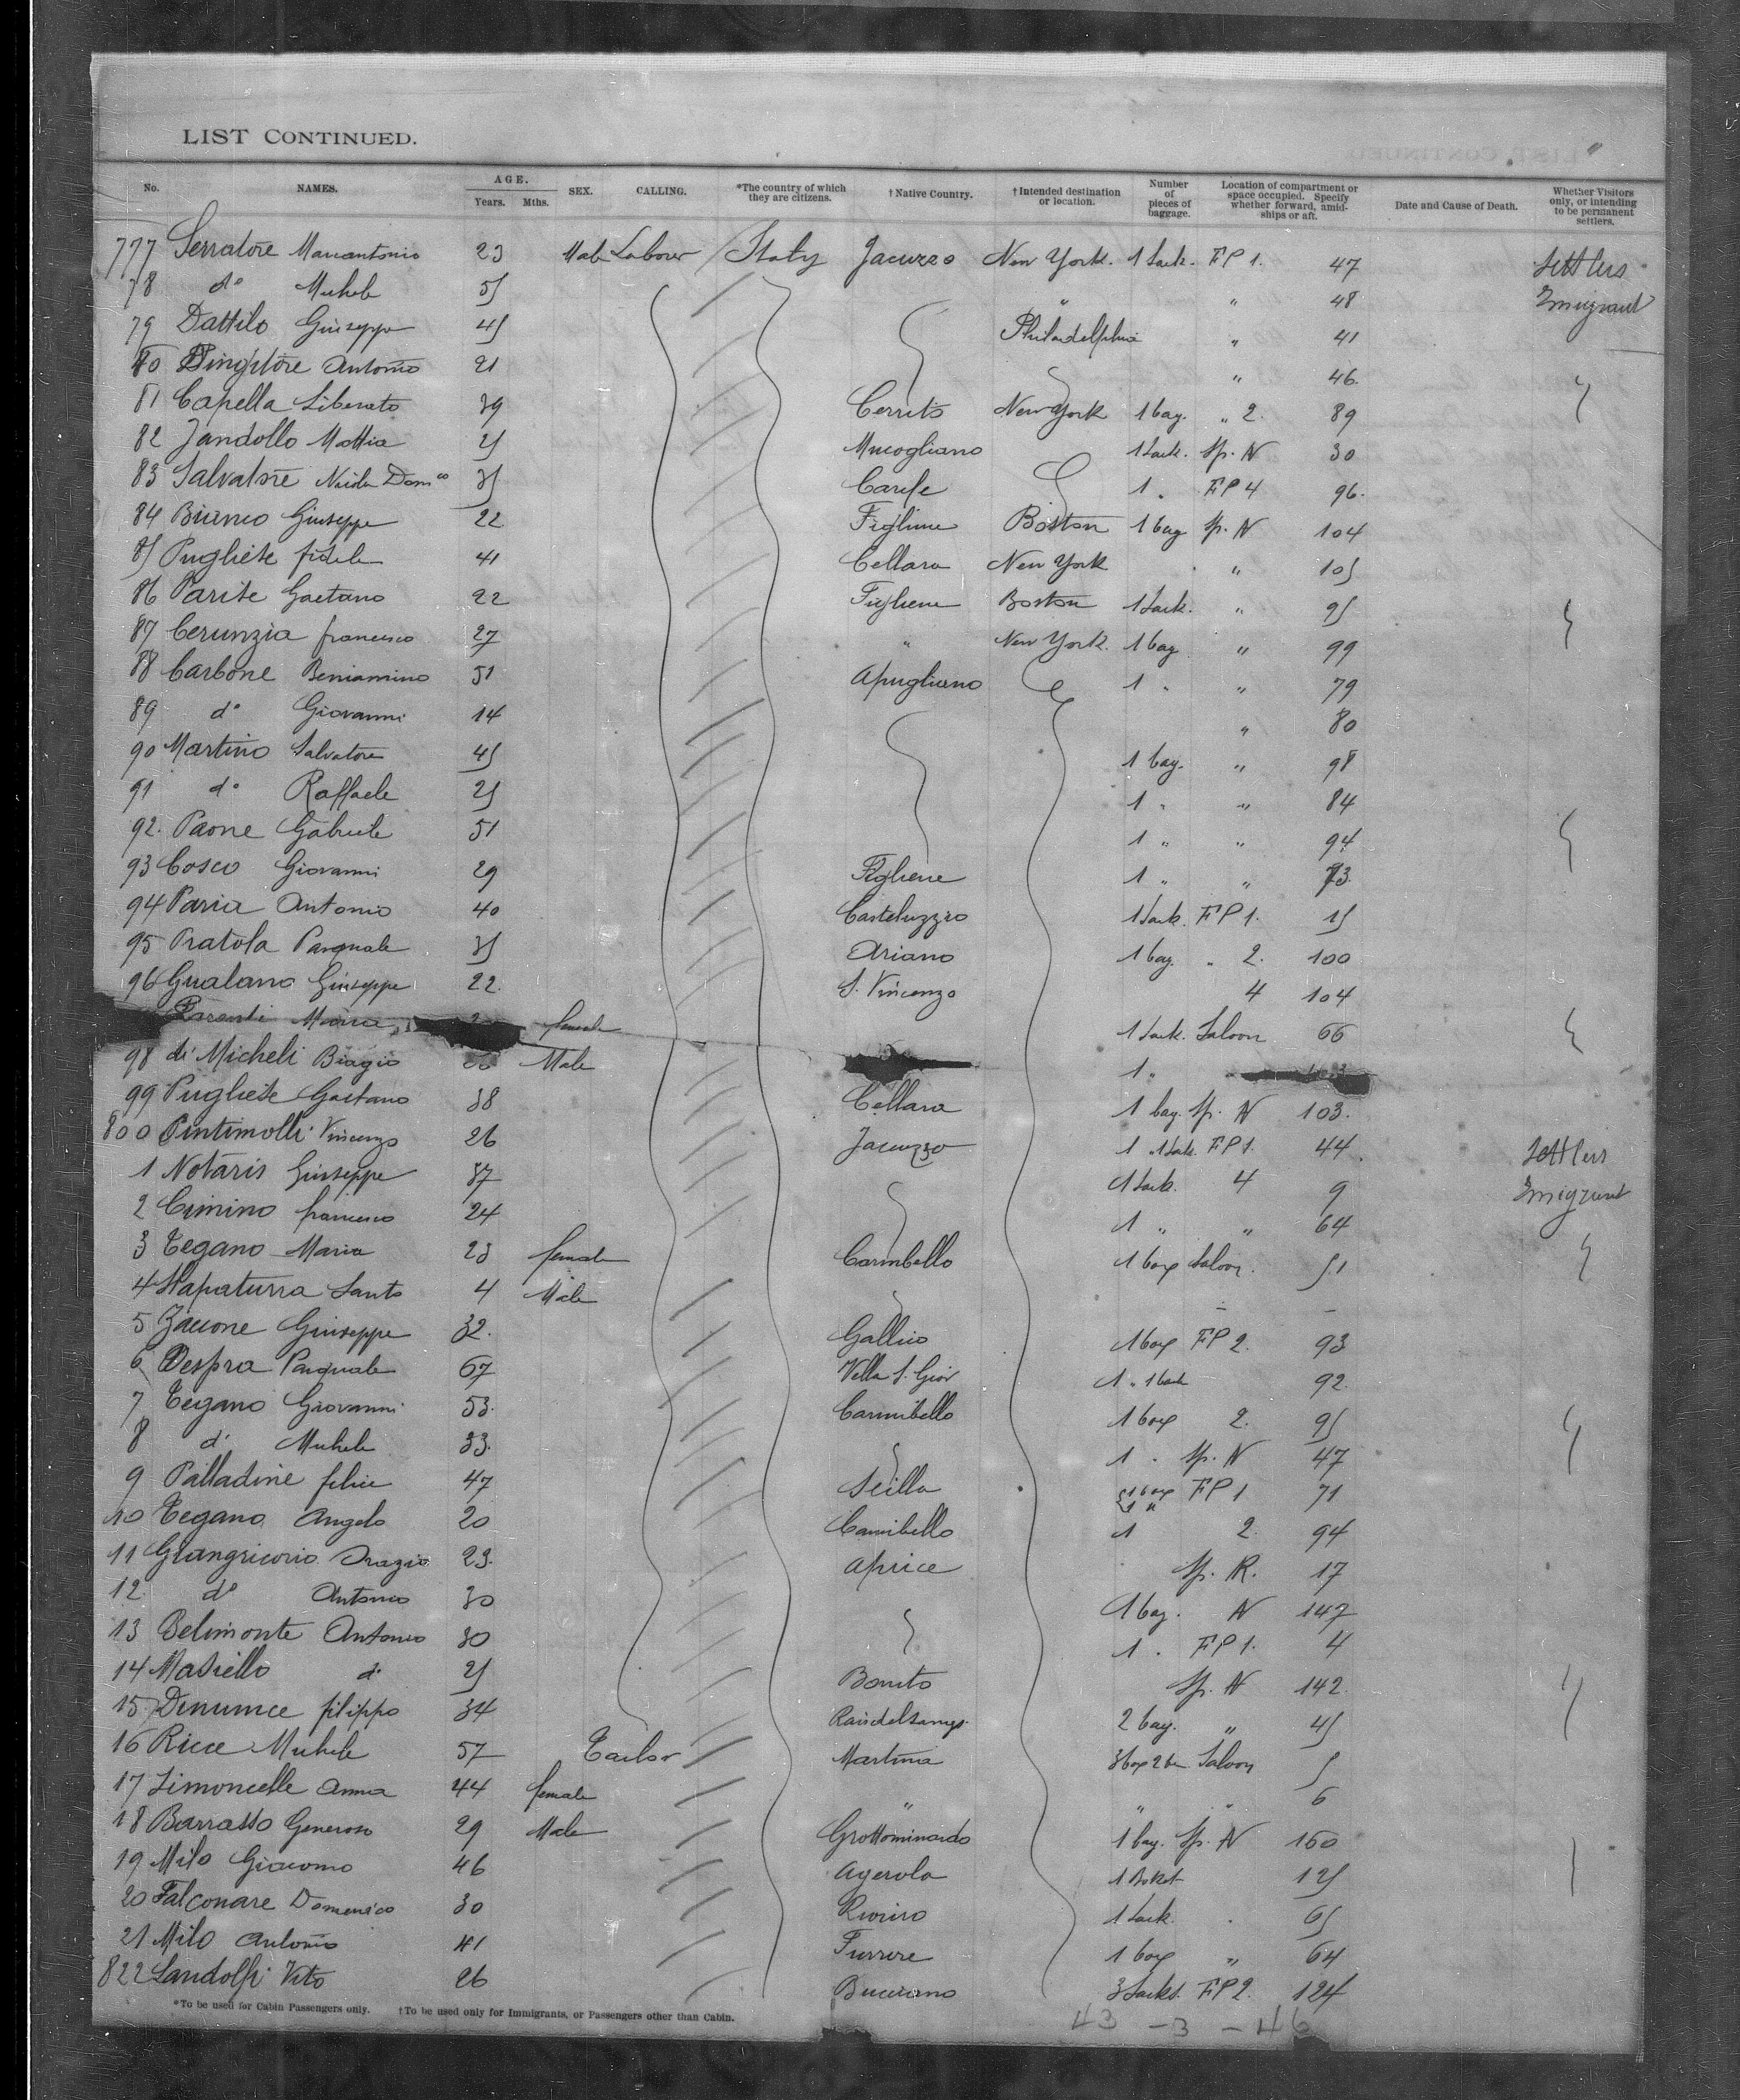 LIST CONTINUED.
No. NAMES. AGE. Years. Mths. SEX. CALLING. *The country of which they are citizens. †Native Country. †Intended destination or location. Number of pieces of baggage. Location of compartment or space occupied. Specify whether forward, amidships or aft. Date and Cause of Death. Whether Visitors only, or intending to be permanent settlers.
777 Serratore Marcantonio 23 Male Labourer Italy Jacurzo New York. 1 Sack. FP 1. 47 Settlers
78 do Michele 55 " " 48 Emigrant
79 Dattilo Giuseppe 45 Philadelphia " 41
80 Antonio 21 " 46.
81 Capella Liberato 39 Cerrito New York 1 bag. " 2. 89
82 Jandollo Mattia 25 Mucogliano 1 Sack. Sp. N 30
83 Salvatore Nicola Domco 35 Carife 1 " FP 4 96.
84 Bianco Giuseppe 22 Figline Boston 1 bag Sp. N 104
85 Pugliese fidele 41 Cellara New York " 105
86 Parise Gaetano 22 Figliene Boston 1 Sack. " 95
87 Cerunzia francesco 27 " New York. 1 bag " 99
88 Carbone Beniamino 51 Apugliano 1 " " 79
89 do Giovanni 14 " 80
90 Martino Salvatore 45 1 bag. " 98
91 do Raffaele 25 1 " " 84
92. Paone Gabriele 51 1 " " 94
93 Cosco Giovanni 29 Figliene 1 " " 73
94 Paria Antonio 40 Casteluzzio 1 Sack. FP 1. 15
95 Pratola Pasquale 35 Ariano 1 bag. " 2. 100
96 Gualano Giuseppe 22. S. Vincenzo 4 104
Maria female 1 Sack. Saloon 66
98 di Micheli Biagio Male 1 "
99 Pugliese Gaetano 38 Cellara 1 bag. Sp. N 103.
800 Pintimolli Vincenzo 26 Jacurzo 1 " 1 Sack. FP 1. 44 Settlers
1 Notaris Giuseppe 37 1 Sack. 4 9 Emigrant
2 Cimino francesco 24 1 " " 64
3 Tegano Maria 23 female Cannibello 1 box Saloon. 51
4 Santo 4 Male – –
5 Zaccone Giuseppe 32. Gallico 1 box FP 2. 93
6 Despra Pasquale 67 Villa S. Giov 1 " 1 Sack 92.
7 Tegano Giovanni 53. Cannibello 1 box 2. 95
8 do Michele 33. 1 " Sp. N 47
9 Palladine felice 47 Scilla 1 box 1 " FP 1 71
10 Tegano Angelo 20 Cannibello 1 2 94
11 Giangricorio Orazio 23. Aprice Sp. R. 17
12 do Antonio 30 1 bag. N 147
13 Belimonte Antonio 30 1 " FP 1. 4
14 Masiello do 25 Bonito Sp. N 142
15 Dinunce filippo 34 2 bag. " 45
16 Ricce Michele 57 Tailor Martina Saloon 5
17 Simoncelle Anna 44 female " " " 6
18 Barrasso Generoso 29 Male Grottominardo 1 bag. Sp. N 160
19 Milo Giacomo 46 Agerola 1 Bsket 125
20 Falconare Domenico 30 1 Sack. " 65
21 Milo Antonio 41 Furrore 1 box " 64
822 Landolfi Vito 26 Bucciano 3 Sacks. FP 2. 124
*To be used for Cabin Passengers only. †To be used only for Immigrants, or Passengers other than Cabin.
43 – 3 – 46